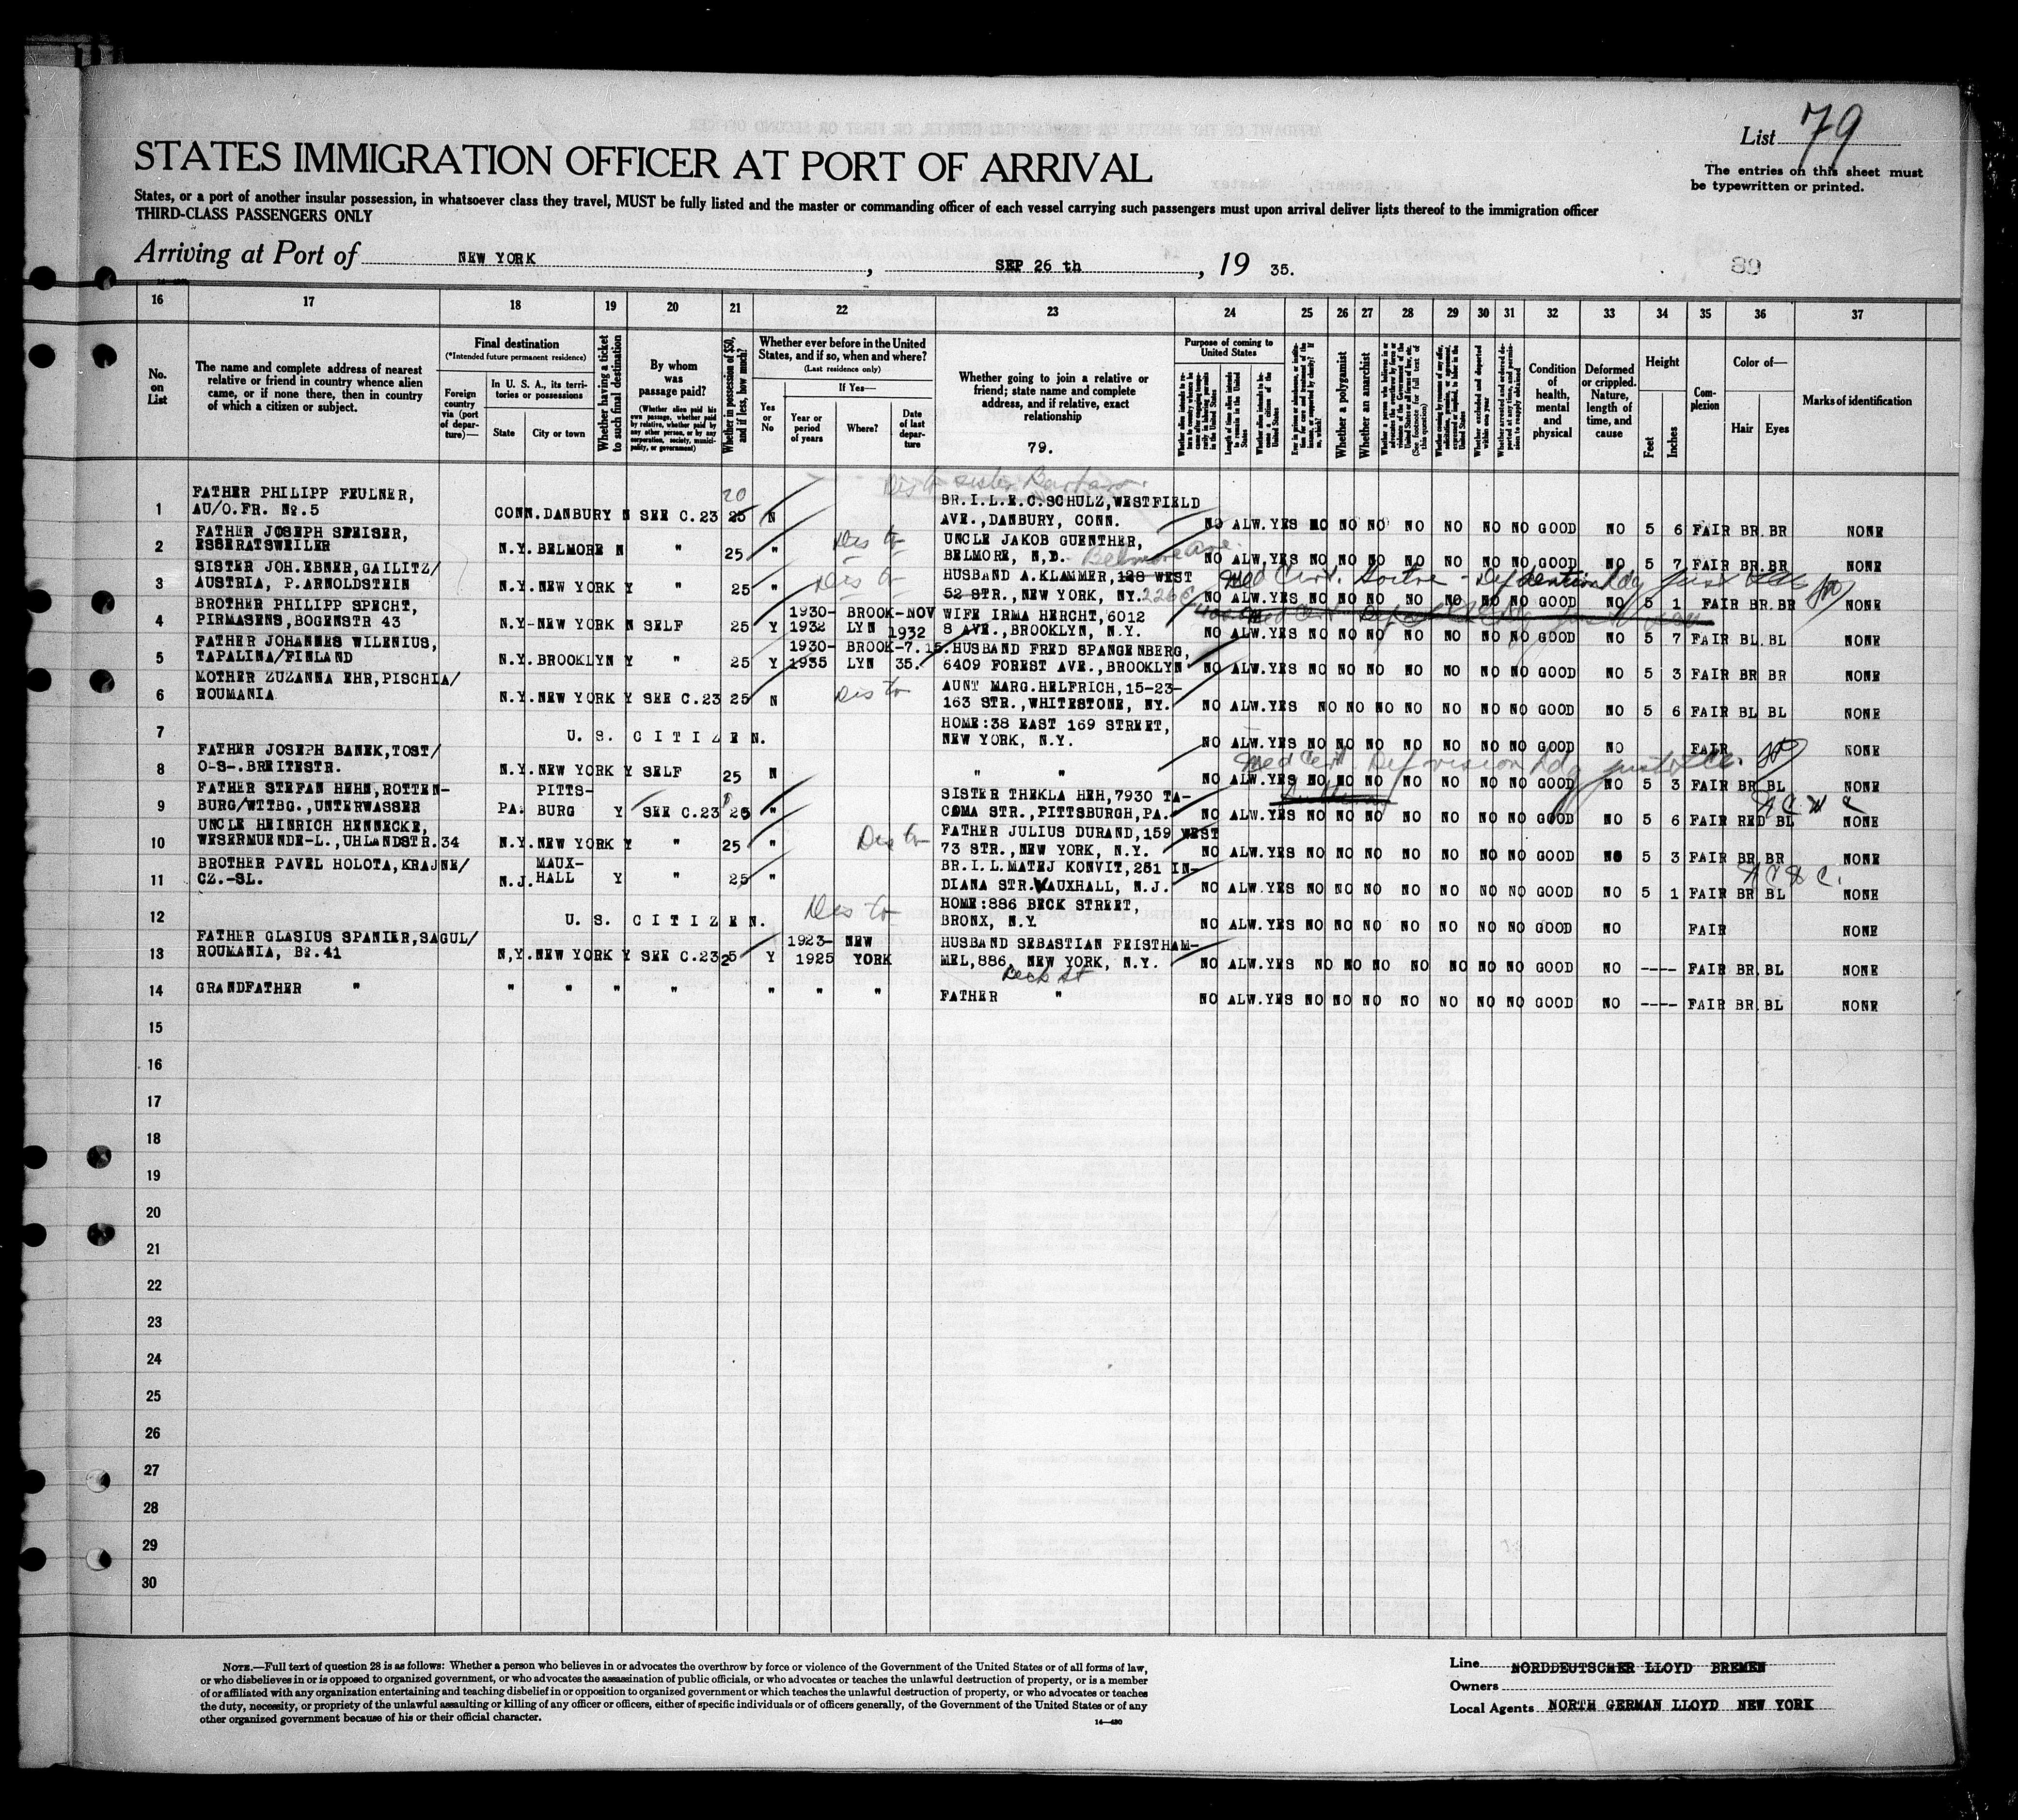 List 79
The entries on this sheet must
be typewritten or printed.
STATES IMMIGRATION OFFICER AT PORT OF ARRIVAL
States, or a port of another insular possession, in whatsoever class they travel, MUST be fully listed and the master or commanding officer of each vessel carrying such passengers must upon arrival deliver lists thereof to the immigration officer
THIRD-CLASS PASSENGERS ONLY
Arriving at Port of NEW YORK, SEP 26 th, 19 35.
16 17 18 19 20 21 22 23 24 25 26 27 28 29 30 31 32 33 34 35 36 37
No. on List
The name and complete address of nearest relative or friend in country whence alien came, or if none there, then in country of which a citizen or subject.
Final destination
(*Intended future permanent residence)
Foreign country via (port of departure)—
In U. S. A., its territories or possessions
State
City or town
Whether having a ticket to such final destination
By whom was passage paid?
(Whether alien paid his own passage, whether paid by relative, whether paid by any other person, or by any corporation, society, municipality, or government)
Whether in possession of $50, and if less, how much?
Whether ever before in the United States, and if so, when and where?
(Last residence only)
If Yes—
Yes or No
Year or period of years
Where?
Date of last departure
Whether going to join a relative or friend; state name and complete address, and if relative, exact relationship
79.
Purpose of coming to United States
Whether a polygamist
Whether an anarchist
Condition of health, mental and physical
Deformed or crippled. Nature, length of time, and cause
Height
Feet
Inches
Complexion
Color of—
Hair
Eyes
Marks of identification
Dis to sister
20
1 FATHER PHILIPP FEULNER, AU/O.FR. No.5 CONN. DANBURY N SEE C.23 25 N BR.I.L.E.C.SCHULZ,WESTFIELD AVE.,DANBURY, CONN. NO ALW. YES NO NO NO NO NO NO NO GOOD NO 5 6 FAIR BR. BR NONE
2 FATHER JOSEPH SPEISER, ESSERATSWEILER N.Y. BELMORE N " 25 " Dis to UNCLE JAKOB GUENTHER, BELMORE, N.D. Belmore Ave. NO ALW. YES NO NO NO NO NO NO NO GOOD NO 5 7 FAIR BR. BR NONE
3 SISTER JOH.EBNER,GAILITZ/ AUSTRIA, P.ARNOLDSTEIN N.Y. NEW YORK Y " 25 " Dis to HUSBAND A.KLAMMER,128 WEST 52 STR., NEW YORK, NY. NO ALW. YES NO NO NO NO NO NO NO GOOD NO 5 1 FAIR BR. BR NONE
Med Cert.
4 BROTHER PHILIPP SPECHT, PIRMASENS,BOGENSTR 43 N.Y-NEW YORK N SELF 25 Y 1930-1932 BROOKLYN NOV 1932 WIFE IRMA HERCHT,6012 8 AVE.,BROOKLYN, N.Y. NO ALW. YES NO NO NO NO NO NO NO GOOD NO 5 7 FAIR BL. BL NONE
5 FATHER JOHANNES WILENIUS, TAPALINA/FINLAND N.Y. BROOKLYN Y " 25 Y 1930-1935 BROOKLYN 7.15.35. HUSBAND FRED SPANGENBERG, 6409 FOREST AVE.,BROOKLYN NO ALW. YES NO NO NO NO NO NO NO GOOD NO 5 3 FAIR BR BR NONE
6 MOTHER ZUZANNA EHR,PISCHIA/ ROUMANIA N.Y. NEW YORK Y SEE C.23 25 N Dis to AUNT MARG.HELFRICH,15-23-163 STR.,WHITESTONE, NY. NO ALW. YES NO NO NO NO NO NO NO GOOD NO 5 6 FAIR BL BL NONE
7 U. S. CITIZEN. HOME:38 EAST 169 STREET, NEW YORK, N.Y. NO ALW. YES NO NO NO NO NO NO NO GOOD NO FAIR NONE
8 FATHER JOSEPH BANEK,TOST/ O-S-.BREITESTR. N.Y. NEW YORK Y SELF 25 N " " NO ALW. YES NO NO NO NO NO NO NO GOOD NO 5 3 FAIR BR BL NONE
Med Cert. Def vision
9 FATHER STEFAN HEHN,ROTTENBURG/WTTBG.,UNTERWASSER PA. PITTSBURG Y SEE C.23 25 " SISTER THEKLA HEH,7930 TACOMA STR.,PITTSBURGH,PA. NO ALW. YES NO NO NO NO NO NO NO GOOD NO 5 6 FAIR RED BL NONE
10 UNCLE HEINRICH HENNECKE, WESERMUENDE-L.,UHLANDSTR.34 N.Y. NEW YORK Y " 25 " Dis to FATHER JULIUS DURAND,159 WEST 73 STR.,NEW YORK, N.Y. NO ALW. YES NO NO NO NO NO NO NO GOOD NO 5 3 FAIR BR BR NONE
11 BROTHER PAVEL HOLOTA,KRAJNE/ CZ.-SL. N.J. MAUX-HALL Y " 25 " BR.I.L.MATEJ KONVIT,261 INDIANA STR.VAUXHALL, N.J. NO ALW. YES NO NO NO NO NO NO NO GOOD NO 5 1 FAIR BR BL NONE
12 U. S. CITIZEN. Dis to HOME:886 BECK STREET, BRONX, N.Y. NO ALW. YES NO NO NO NO NO NO NO GOOD NO FAIR NONE
13 FATHER GLASIUS SPANIER,SAGUL/ ROUMANIA, No.41 N.Y. NEW YORK Y SEE C.23 25 Y 1923-1925 NEW YORK HUSBAND SEBASTIAN FEISTHAMMEL,886, NEW YORK, N.Y. Beck St NO ALW. YES NO NO NO NO NO NO NO GOOD NO ---- FAIR BR. BL NONE
14 GRANDFATHER " " " " " " " " FATHER " NO ALW. YES NO NO NO NO NO NO NO GOOD NO ---- FAIR BR. BL NONE
15
16
17
18
19
20
21
22
23
24
25
26
27
28
29
30
NOTE.—Full text of question 28 is as follows: Whether a person who believes in or advocates the overthrow by force or violence of the Government of the United States or of all forms of law,
or who disbelieves in or is opposed to organized government, or who advocates the assassination of public officials, or who advocates or teaches the unlawful destruction of property, or is a member
of or affiliated with any organization entertaining and teaching disbelief in or opposition to organized government or which teaches the unlawful destruction of property, or who advocates or teaches
the duty, necessity, or propriety of the unlawful assaulting or killing of any officer or officers, either of specific individuals or of officers generally, of the Government of the United States or of any
other organized government because of his or their official character.
14—430
Line NORDDEUTSCHER LLOYD BREMEN
Owners
Local Agents NORTH GERMAN LLOYD NEW YORK